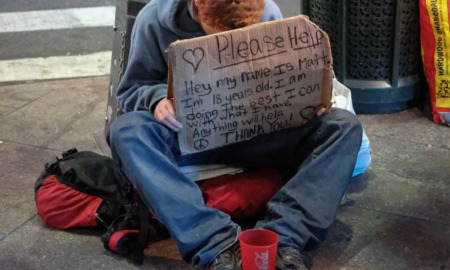 ♡ Please Help
Hey my name Is Matt.
Im 18 years old. I am
doing the best I can
with what I have.
Anything will help
THANK YOU!
HARDWOOD CHARCOAL